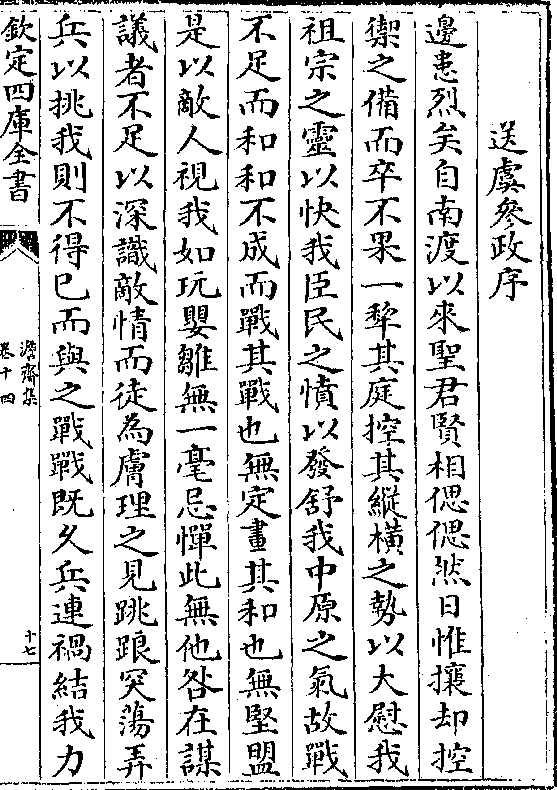 送虞參政序
邊患烈矣自南渡以來聖君賢相偲偲然日惟攘却控
禦之備而卒不果一犂其庭控其縱橫之勢以大慰我
祖宗之靈以快我臣民之憤以發舒我中原之氣故戰
不足而和和不成而戰其戰也無定畫其和也無堅盟
是以敵人視我如玩嬰雛無一毫忌憚此無他咎在謀
議者不足以深識敵情而徒為膚理之見跳踉突蕩弄
兵以挑我則不得已而與之戰戰既久兵連禍結我力
欽定四庫全書
澹齋集
卷十四
十七